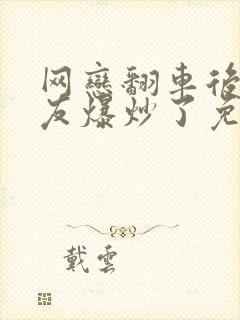 网戀翻車後
友爆炒了免
戴雲